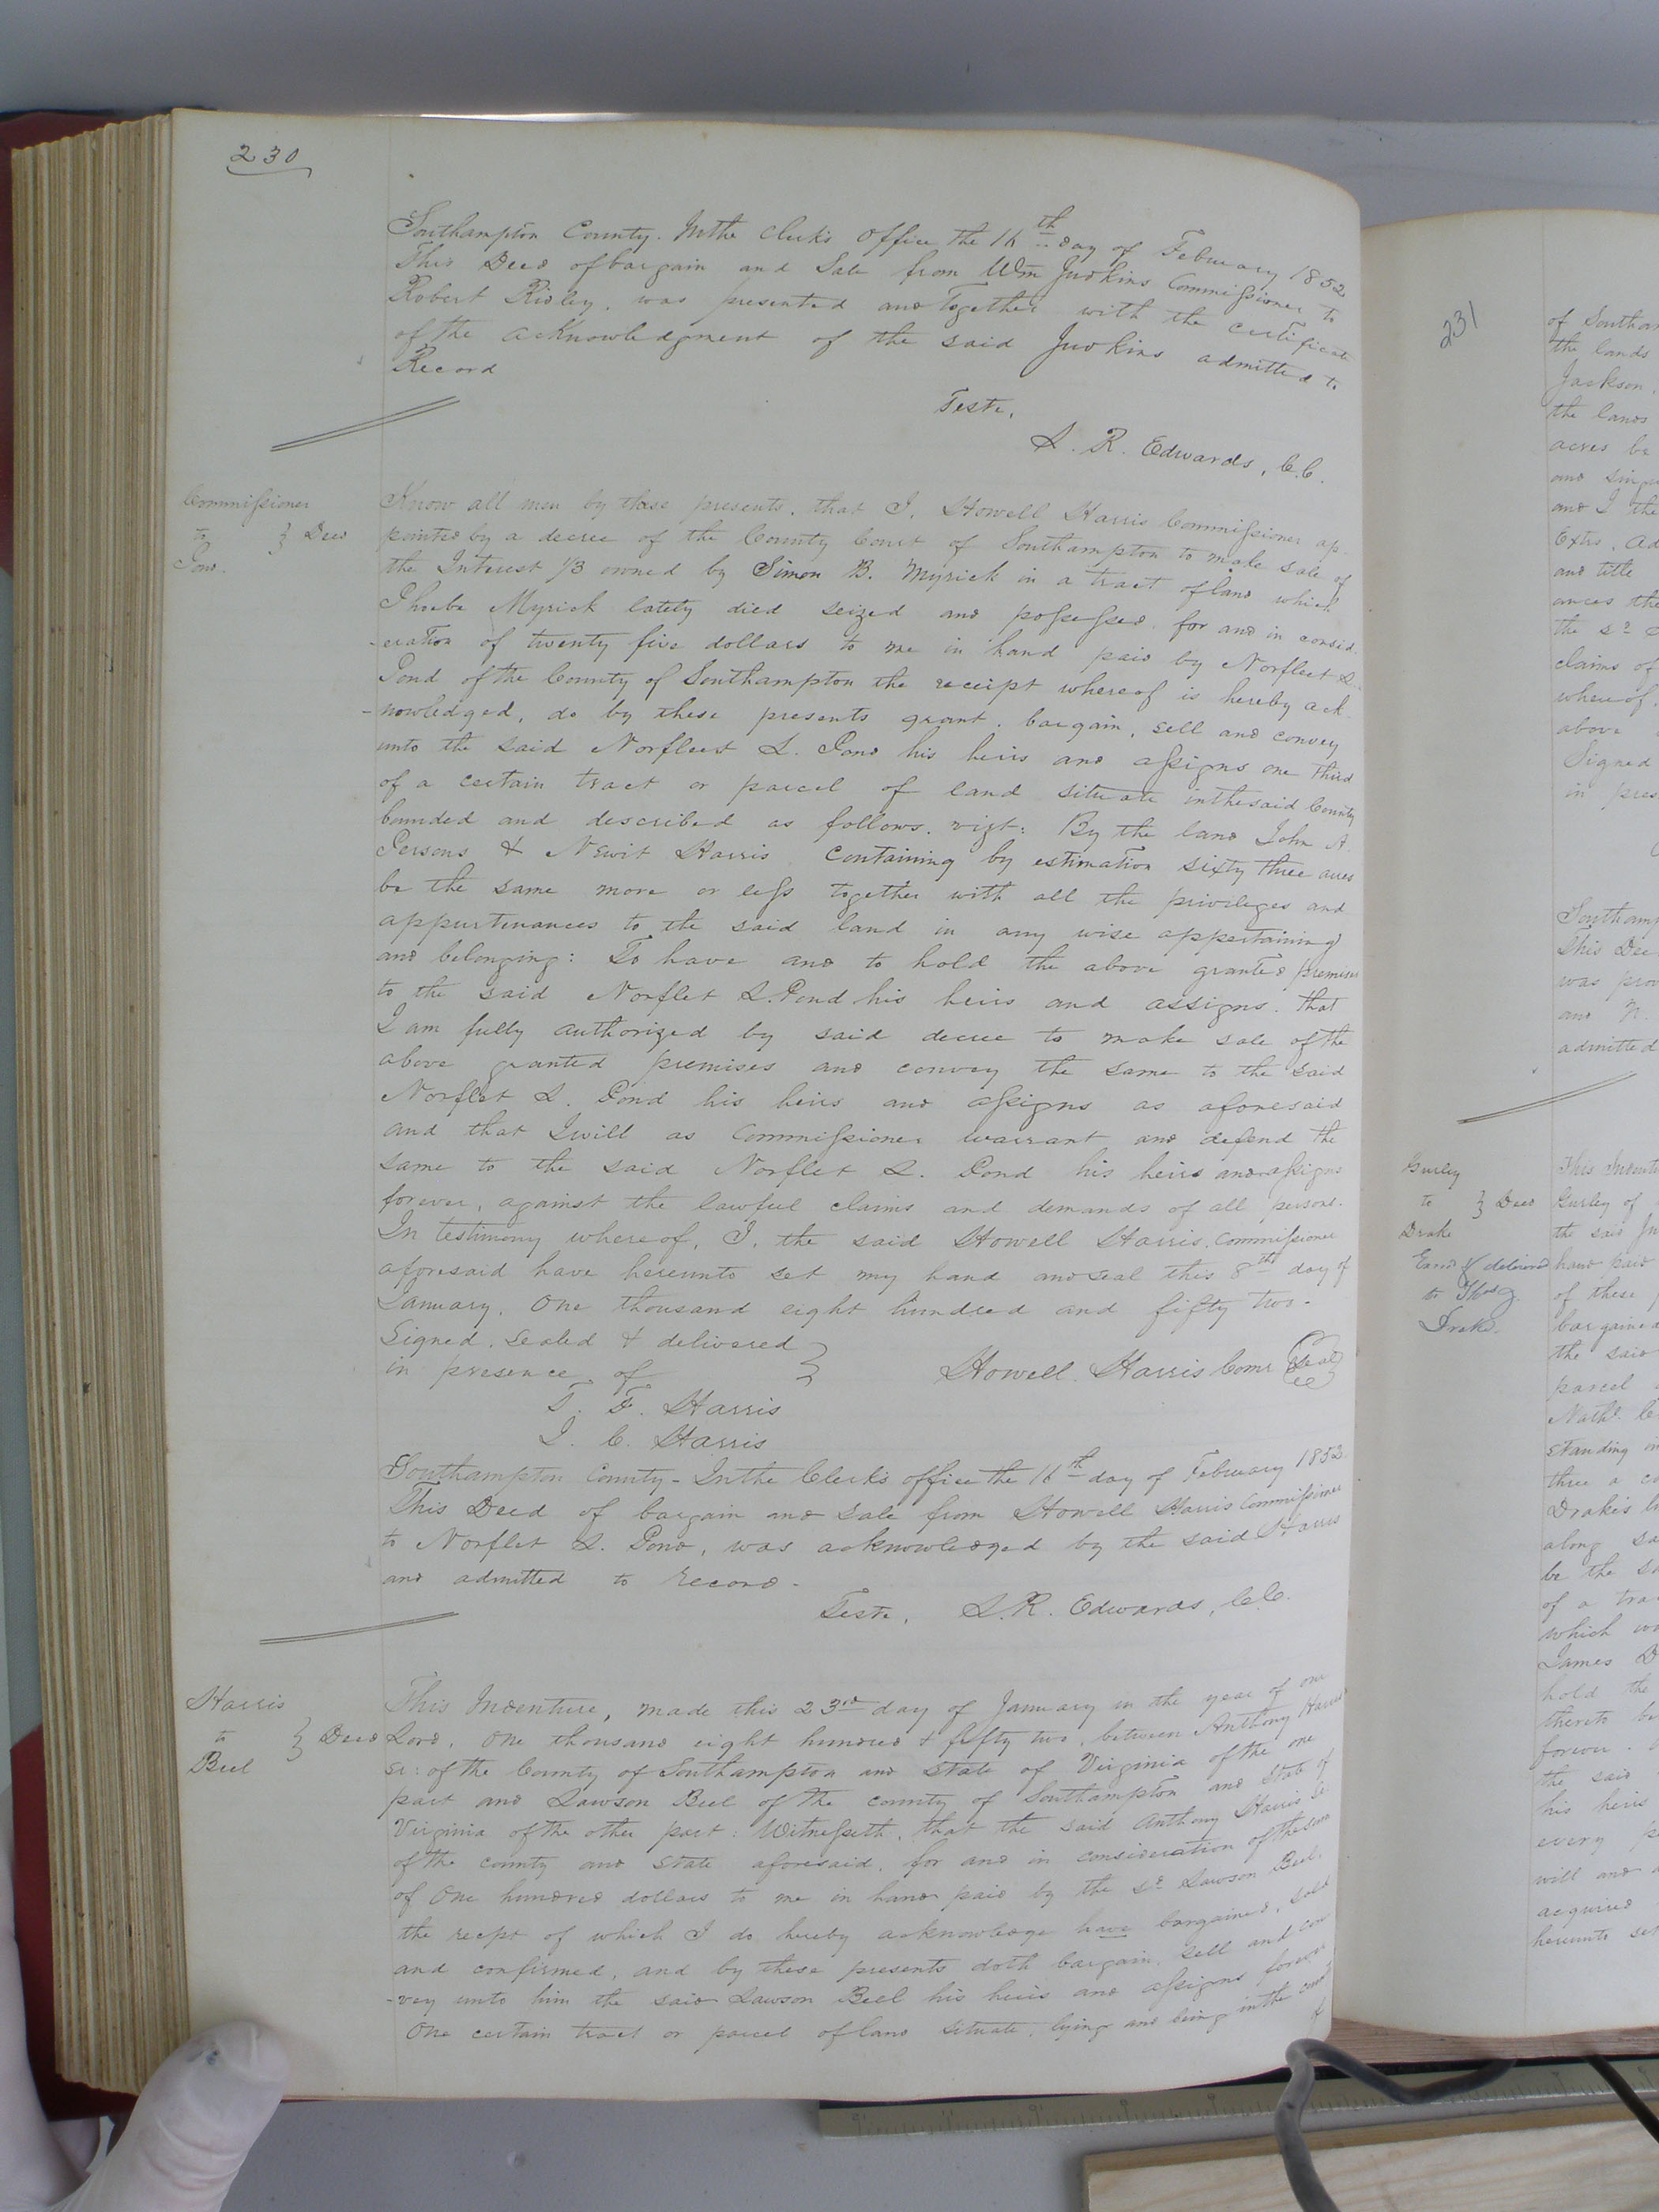 230
Southampton County. In the Clerk's Office the 16th day of February 1852
This Deed of bargain and Sale from Wm Judkins Commissioner to
Robert Ridley, was presented and together with the certificate
of the acknowledgment of the said Judkins admitted to
Record
Teste,
L. R. Edwards, C.C.
Commissioner
to } Deed
Pond.
Know all men by these presents, that I, Howell Harris Commissioner ap-
pointed by a decree of the County Court of Southampton to make sale of
the Interest 1/3 owned by Simon B. Myrick in a tract of land which
Phoebe Myrick lately died seized and possessed, for and in consid-
-eration of twenty five dollars to me in hand paid by Norfleet L.
Pond of the County of Southampton the receipt whereof is hereby ack-
-nowledged, do by these presents grant, bargain, sell and convey
unto the said Norfleet L. Pond his heirs and assigns one third
of a certain tract or parcel of land situate in the said County
bounded and described as follows, vizt: By the land John A.
Persons & Newit Harris containing by estimation sixty three acres
be the same more or less together with all the privileges and
appurtenances to the said land in any wise appertaining
and belonging: To have and to hold the above granted premises
to the said Norflet L. Pond his heirs and assigns. that
I am fully authorized by said decree to make sale of the
above granted premises and convey the same to the said
Norflet L. Pond his heirs and assigns as aforesaid
and that I will as Commissioner warrant and defend the
same to the said Norflet L. Pond his heirs and assigns
forever, against the lawful claims and demands of all persons.
In testimony whereof, I, the said Howell Harris, Commissioner
aforesaid have hereunto set my hand and seal this 8th day of
January, One thousand eight hundred and fifty two.
Signed, sealed & delivered }
in presence of
Howell Harris Comr (Seal)
T. F. Harris
I. C. Harris
Southampton County - In the Clerk's office the 16th day of February 1852.
This Deed of bargain and sale from Howell Harris Commissioner
to Norflet L. Pond, was acknowledged by the said Harris
and admitted to record.
Teste, L. R. Edwards, C.C.
Harris
to } Deed
Beel
This Indenture, made this 23rd day of January in the year of our
Lord, One thousand eight hundred & fifty two, between Anthony Harris
Sr: of the County of Southampton and State of Virginia of the one
part and Lawson Beel of the county of Southampton and State of
Virginia of the other part: Witnesseth, that the said Anthony Harris Sr
of the county and State aforesaid, for and in consideration of the sum
of One hundred dollars to me in hand paid by the sd. Lawson Beel,
the recpt of which I do hereby acknowledge have bargained, sold
and confirmed, and by these presents doth bargain, sell and con-
-vey unto him the said Lawson Beel his heirs and assigns forever
One certain tract or parcel of land situate, lying and being in the county
of
231
of Southam
the lands
Jackson,
the lands
acres be
and singu
and I the
Extrs, Ad
and title
ances the
the sd
claims of
whereof,
above
Signed
in pres
Southamp
This Dee
was prov
and N.
admitted
Gurley
to } Deed
Drake
delivered
to Thos J.
Drake
This Indent
Gurley of
the said
hand paid
of these
bargained
the said
parcel
Nathl.
standing in
three a co
Drake's li
along sa
be the sa
of a tra
which wa
James D
hold the
thereto be
forever.
the said
his heirs
every pe
will and
acquired
hereunto set